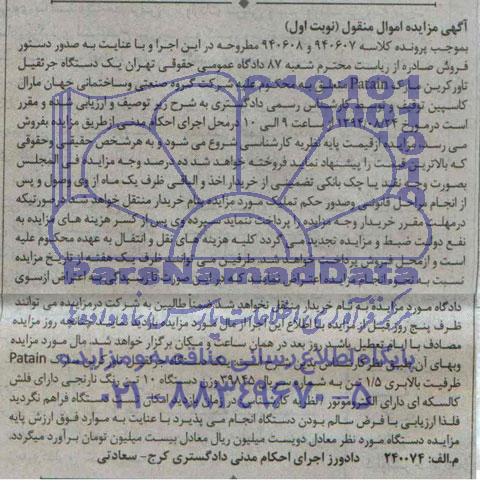 آگهی مزایده اموال منقول (نوبت اول)
بموجب پرونده کلاسه ۹۴۰۶۰۷ و ۹۴۰۶۰۸ مطروحه در این اجرا و با عنایت به صدور دستور
فروش صادره از ریاست محترم شعبه ۸۷ دادگاه عمومی حقوقی تهران یک دستگاه جرثقیل
تاورکرین مارک Patain متعلق به محکوم علیه شرکت گروه صنعتی وساختمانی جهان مارال
کاسپین توقیف و توسط کارشناس رسمی دادگستری به شرح زیر توصیف و ارزیابی شده و مقرر
است درمورخ ساعت ۹ الی ۱۰ درمحل اجرای احکام مدنی ازطریق مزایده بفروش
می رسد مزایده ازقیمت پایه نظریه کارشناسی شروع می شود و به هرشخص حقیقی وحقوقی
که بالاترین قیمت را پیشنهاد نماید فروخته خواهد شد ده درصد وجه مزایده فی المجلس
بصورت وجه نقد یا چک بانکی تضمینی از خریدار اخذ و الباقی ظرف یک ماه از وی وصول و پس
از انجام مراحل قانونی وصدور حکم تملیک مورد مزایده بنام خریدار منتقل خواهد شد درصورتیکه
درمهلت مقرر خریدار وجه مزایده را پرداخت ننماید سپرده وی پس از کسر هزینه های مزایده به
نفع دولت ضبط و مزایده تجدید می گردد کلیه هزینه های نقل و انتقال به عهده محکوم علیه
است و ازمحل فروش پرداخت خواهد شد. طرفین می توانند ظرف یک هفته از تاریخ مزایده
نسبت به نحوه انجام مزایده اعتراض نمایند که در این صورت تا رسیدگی به اعتراض ازسوی
دادگاه مورد مزایده به نام خریدار منتقل نخواهد شد. ضمناً طالبین به شرکت درمزایده می توانند
ظرف پنج روز قبل از مزایده با اطلاع این اجرا از مال مورد مزایده بازدید روز مزایده
مصادف با ایام تعطیل باشد روز بعد در همان ساعت و مکان برگزار خواهد شد.
وبهای آن طبق نظر کارشناس Patain
ظرفیت بالابری ۱/۵ تن به شماره سریال ۳۹۸۴۵ وزن دستگاه ۱۰ تن رنگ نارنجی دارای فلش
کالسکه ای دارای الکتروموتور دستگاه فراهم نگردید
فلذا ارزیابی با فرض سالم بودن دستگاه انجام می پذیرد با عنایت به موارد فوق ارزش پایه
مزایده دستگاه مورد نظر معادل دویست میلیون ریال معادل بیست میلیون تومان برآورد میگردد.
م.الف: ۲۴۰۰۷۴ دادورز اجرای احکام مدنی دادگستری کرج- سعادتی
ParsNamadData
مرکز فرآوری اطلاعات پارس نماد داده ها
پایگاه اطلاع رسانی مناقصه و مزایده
۰۲۱-۸۸۳۴۹۶۷۰-۵